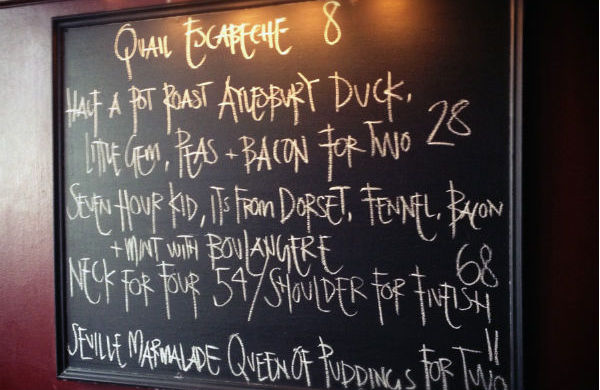 QUAIL ESCABECHE 8
HALF A POT ROAST AYLESBURY DUCK,
LITTLE GEM, PEAS + BACON FOR TWO 28
SEVEN HOUR KID, ITS FROM DORSET, FENNEL, BACON
+ MINT WITH BOULANGERE
NECK FOR FOUR 54/SHOULDER FOR FIVEISH 68
SEVILLE MARMALADE QUEEN OF PUDDINGS FOR TWO 11